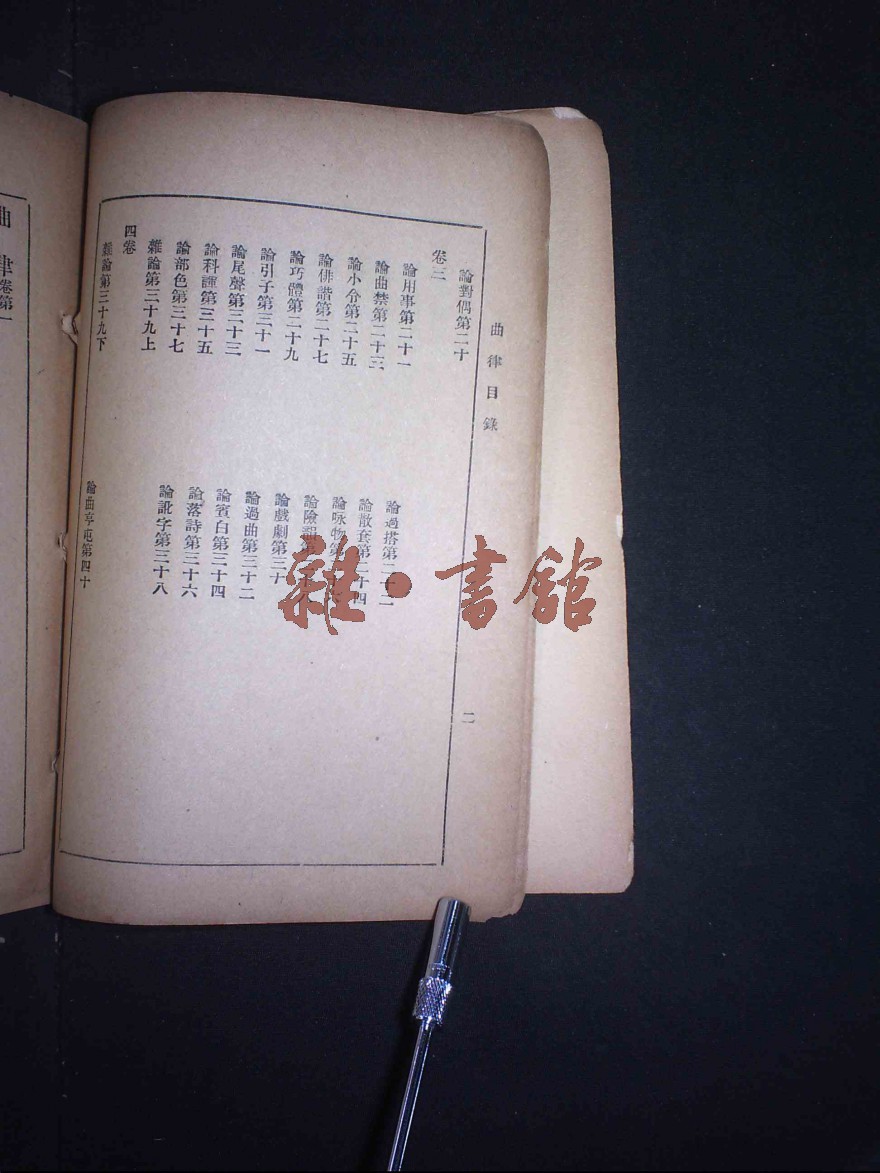 曲律目錄
二
論對偶第二十
卷三
論用事第二十一
論過搭第二十二
論曲禁第二十三
論散套第二十四
論小令第二十五
論咏物第
論俳諧第二十七
論險韻第
論巧體第二十九
論戲劇第三十
論引子第三十一
論過曲第三十二
論尾聲第三十三
論賓白第三十四
論科諢第三十五
論落詩第三十六
論部色第三十七
論訛字第三十八
雜論第三十九上
四卷
雜論第三十九下
論曲亨屯第四十
曲律卷第一
雜·書館